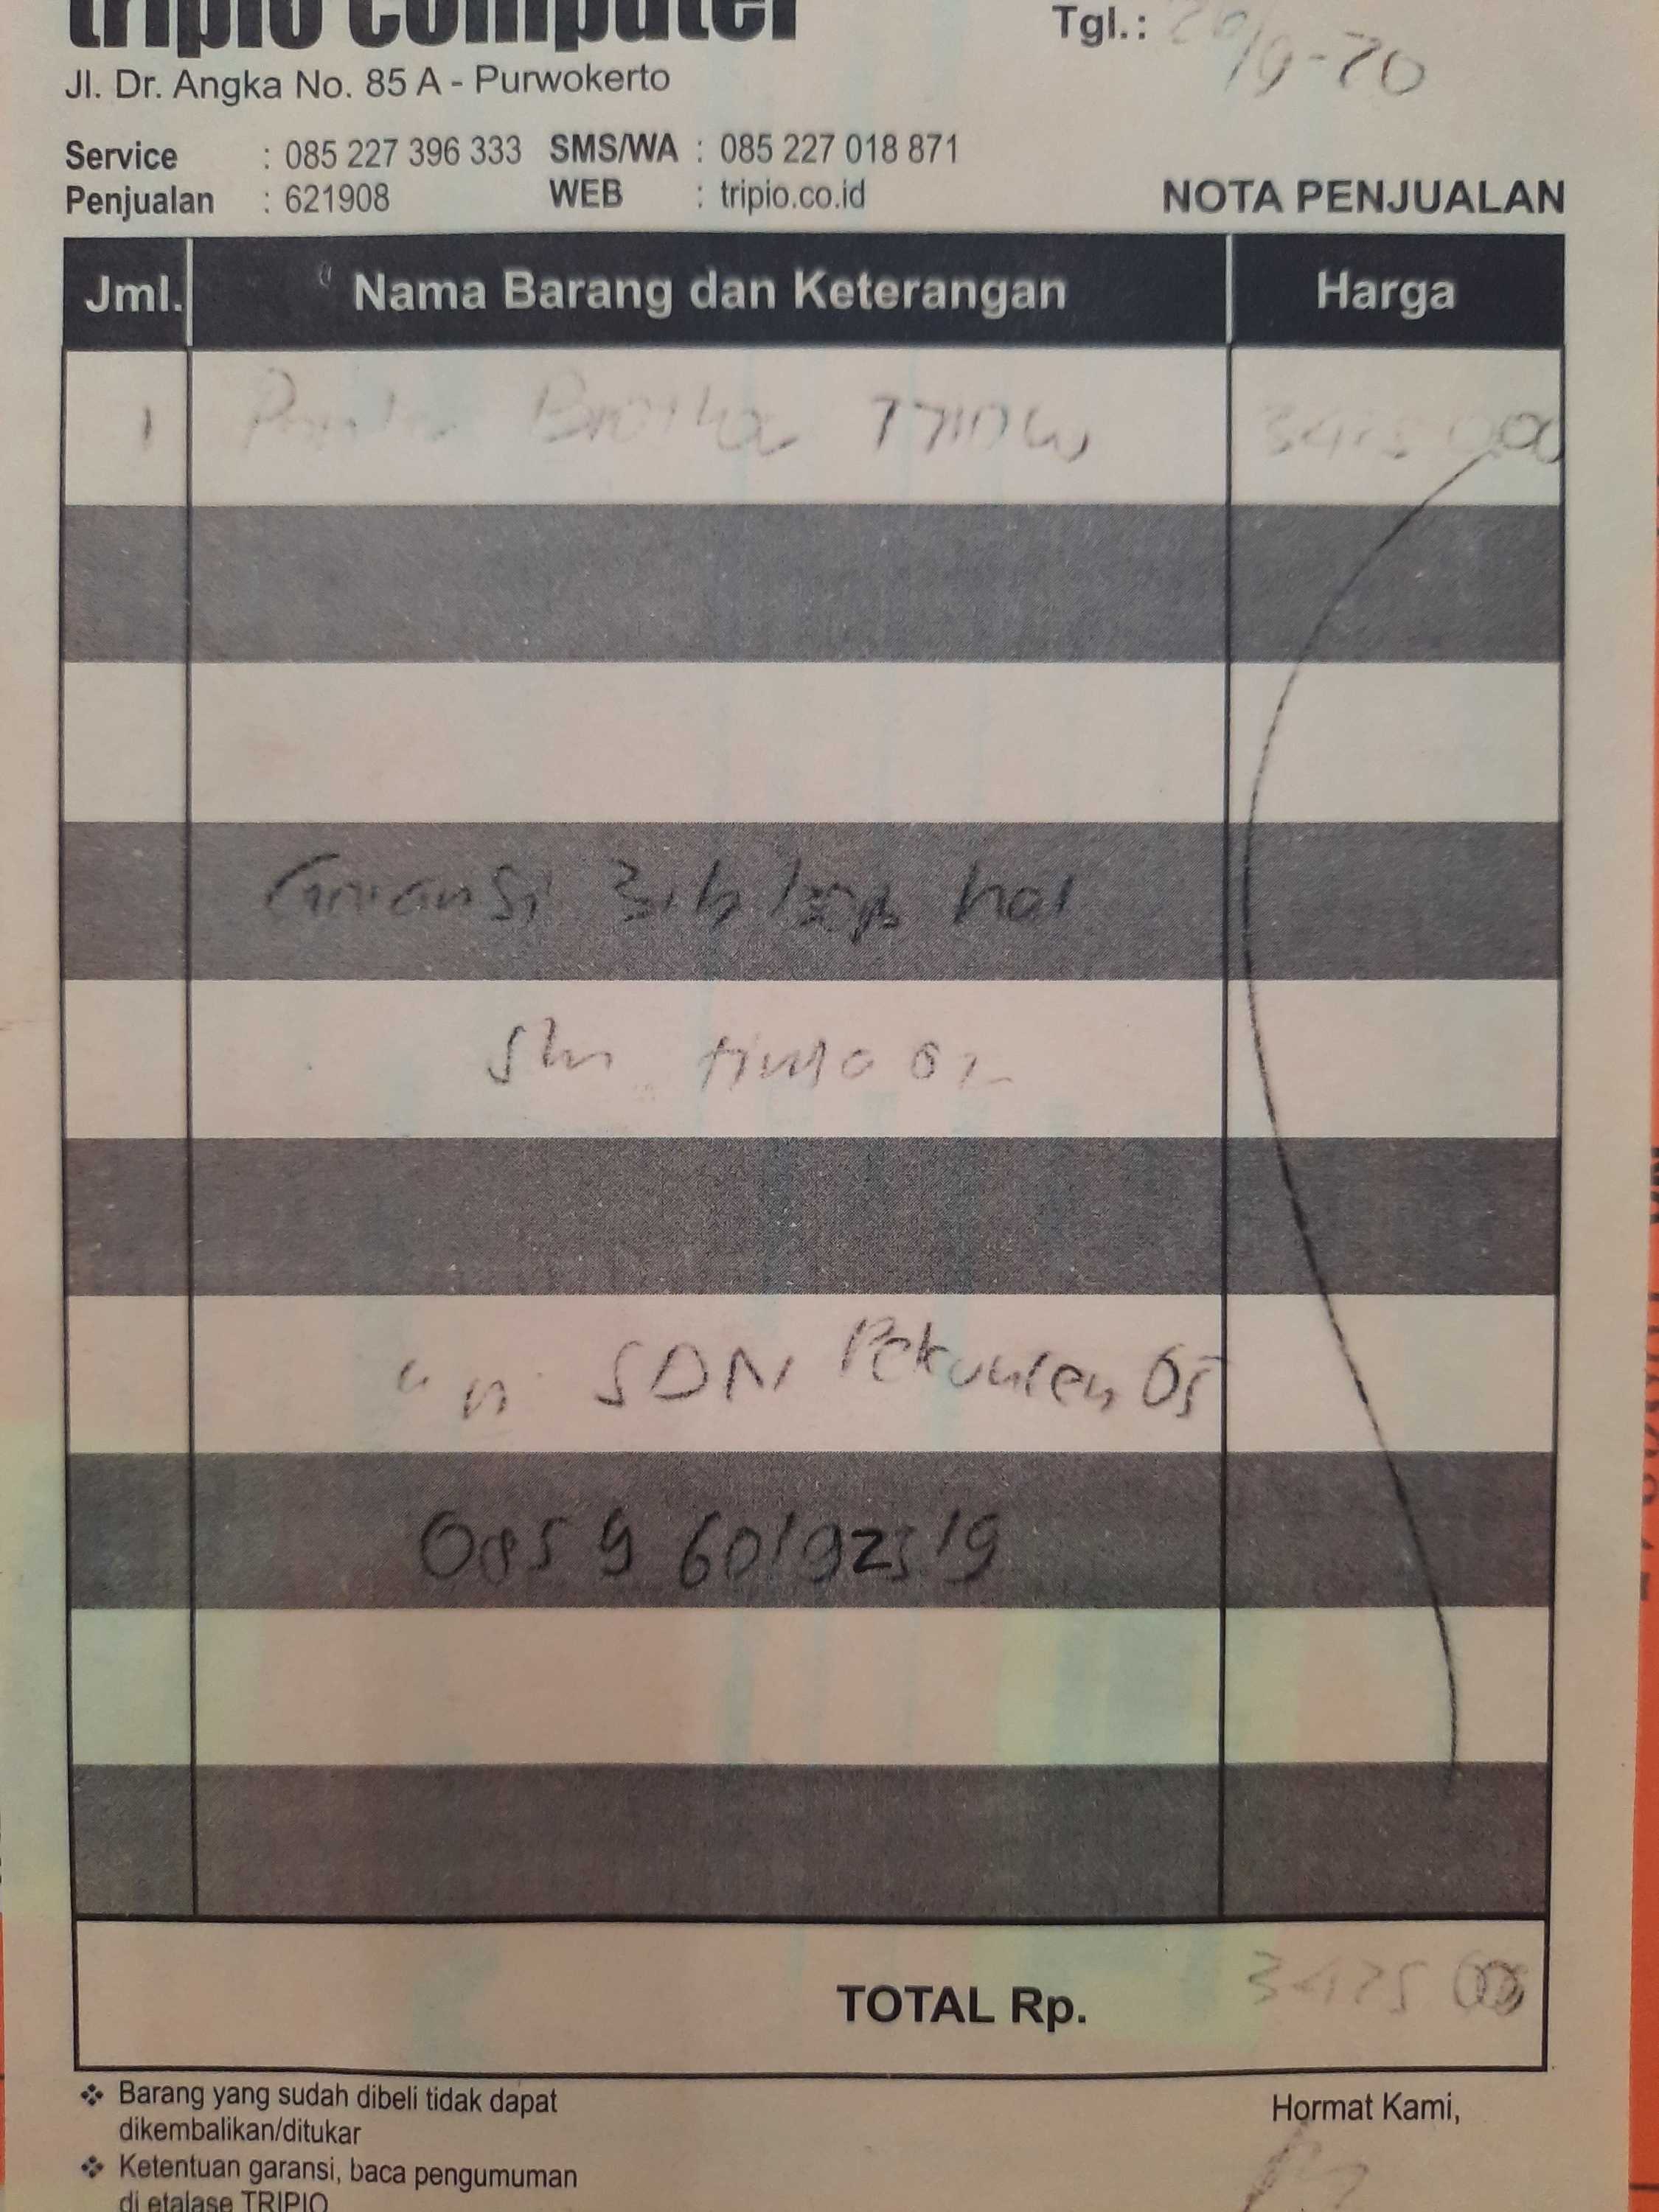 tripio computer
Tgl.: 20/9-20
Jl. Dr. Angka No. 85 A - Purwokerto
Service : 085 227 396 333 SMS/WA : 085 227 018 871
Penjualan : 621908 WEB : tripio.co.id
NOTA PENJUALAN
Jml. Nama Barang dan Keterangan Harga
1 Printer Brother T710W 3425000
Garansi 3 th
tinta
an SDN Pekuncen 05
TOTAL Rp. 3425000
❖ Barang yang sudah dibeli tidak dapat
dikembalikan/ditukar
Hormat Kami,
❖ Ketentuan garansi, baca pengumuman
di etalase TRIPIO